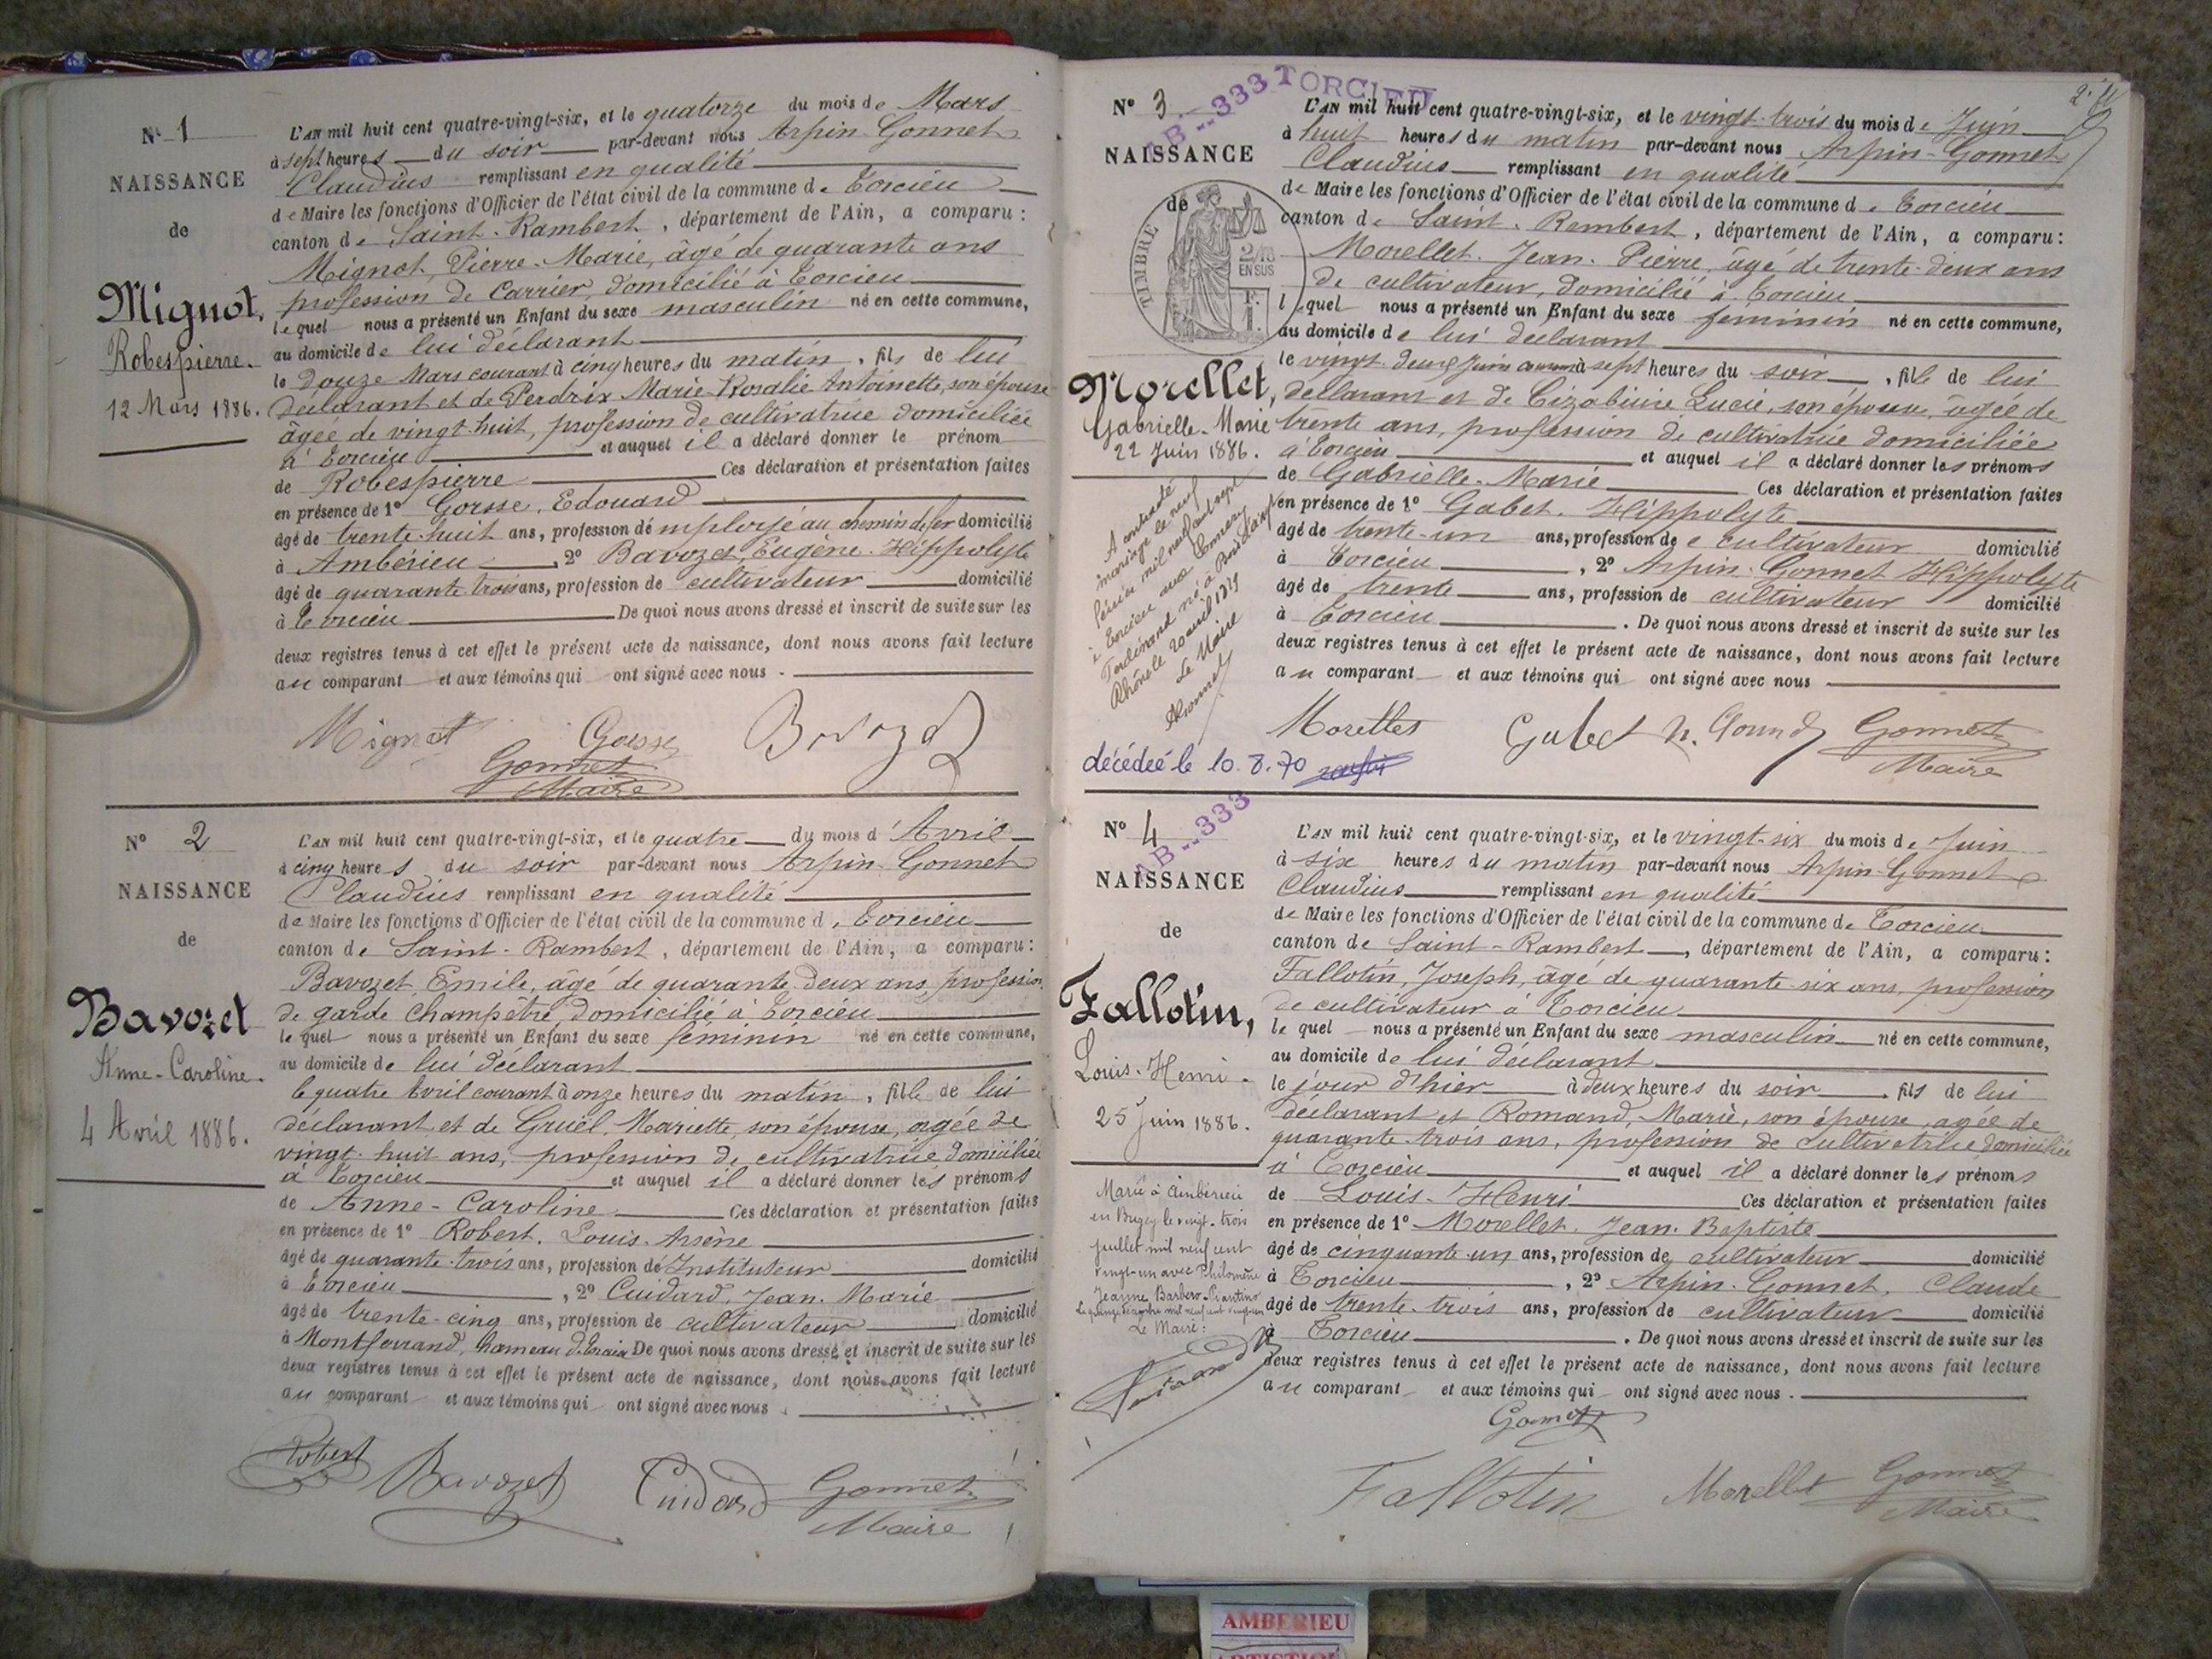 N° 1
NAISSANCE
de
Mignot,
Robespierre.
12 Mars 1886.
L'AN mil huit cent quatre-vingt-six, et le quatorze du mois de Mars
à sept heures du soir par-devant nous Arpin-Gonnet
Claudius remplissant en qualité
de Maire les fonctions d'Officier de l'état civil de la commune de Torcieu
canton de Saint-Rambert, département de l'Ain, a comparu :
Mignot, Pierre-Marie, âgé de quarante ans
profession de Carrier, domicilié à Torcieu
lequel nous a présenté un Enfant du sexe masculin né en cette commune,
au domicile de lui déclarant
le douze Mars courant à cinq heures du matin, fils de lui
déclarant et de Perdrix Marie-Rosalie Antoinette, son épouse
âgée de vingt-huit, profession de cultivatrice domiciliée
à Torcieu et auquel il a déclaré donner le prénom
de Robespierre Ces déclaration et présentation faites
en présence de 1° Gorsse, Edouard
âgé de trente-huit ans, profession d'employé au chemin de fer domicilié
à Ambérieu, 2° Bavozet, Eugène-Hippolyte
âgé de quarante trois ans, profession de cultivateur domicilié
à Torcieu De quoi nous avons dressé et inscrit de suite sur les
deux registres tenus à cet effet le présent acte de naissance, dont nous avons fait lecture
au comparant et aux témoins qui ont signé avec nous.
Mignot Gorsse Bavozet
Gonnet
Maire
N° 2
NAISSANCE
de
Bavozet
Anne-Caroline.
4 Avril 1886.
L'AN mil huit cent quatre-vingt-six, et le quatre du mois d'Avril
à cinq heures du soir par-devant nous Arpin-Gonnet
Claudius remplissant en qualité
de Maire les fonctions d'Officier de l'état civil de la commune d. Torcieu
canton de Saint-Rambert, département de l'Ain, a comparu :
Bavozet, Emile, âgé de quarante deux ans, profession
de garde champêtre, domicilié à Torcieu
lequel nous a présenté un Enfant du sexe féminin né en cette commune,
au domicile de lui déclarant
le quatre Avril courant à onze heures du matin, fille de lui
déclarant et de Gruel, Mariette, son épouse, agée de
vingt-huit ans, profession de cultivatrice domiciliée
à Torcieu et auquel il a déclaré donner les prénoms
de Anne-Caroline Ces déclaration et présentation faites
en présence de 1° Robert, Louis-Arsène
âgé de quarante-trois ans, profession de Instituteur domicilié
à Torcieu, 2° Cuidard, Jean-Marie
âgé de trente-cinq ans, profession de cultivateur domicilié
à Montferrand, hameau de De quoi nous avons dressé et inscrit de suite sur les
deux registres tenus à cet effet le présent acte de naissance, dont nous avons fait lecture
au comparant et aux témoins qui ont signé avec nous.
Robert Bavozet Cuidard Gonnet
Maire
AB..333 TORCIEU
N° 3
NAISSANCE
de
TIMBRE
2/10
EN SUS
Morellet,
Gabrielle-Marie
22 Juin 1886.
A contracté
mariage le neuf
février mil neuf cent sept
à Torcieu avec
Ferdinand né à
Rhône le 20 avril
Le Maire
décédée le 10.8.70
L'AN mil huit cent quatre-vingt-six, et le vingt-trois du mois de Juin
à huit heures du matin par-devant nous Arpin-Gonnet
Claudius remplissant en qualité
de Maire les fonctions d'Officier de l'état civil de la commune d. Torcieu
canton de Saint-Rambert, département de l'Ain, a comparu :
Morellet, Jean-Pierre, âgé de trente-deux ans
de cultivateur, domicilié à Torcieu
lequel nous a présenté un Enfant du sexe féminin né en cette commune,
au domicile de lui déclarant
le vingt-deux Juin courant à sept heures du soir, fille de lui
déclarant et de Lucie, son épouse, âgée de
trente ans, profession de cultivatrice domiciliée
à Torcieu et auquel il a déclaré donner les prénoms
de Gabrielle-Marie Ces déclaration et présentation faites
en présence de 1° Gabet, Hippolyte
âgé de trente-un ans, profession de cultivateur domicilié
à Torcieu, 2° Arpin-Gonnet Hippolyte
âgé de trente ans, profession de cultivateur domicilié
à Torcieu. De quoi nous avons dressé et inscrit de suite sur les
deux registres tenus à cet effet le présent acte de naissance, dont nous avons fait lecture
au comparant et aux témoins qui ont signé avec nous
Morellet Gabet Gonnet
Maire
AB..333
N° 4
NAISSANCE
de
Fallotin,
Louis-Henri.
25 Juin 1886.
Marié à Ambérieu
en Bugey le vingt-trois
juillet mil neuf cent
vingt-un avec Philomène
Jeanne Barbero-Piantino
Le Maire :
L'AN mil huit cent quatre-vingt-six, et le vingt-six du mois de Juin
à six heures du matin par-devant nous Arpin-Gonnet
Claudius remplissant en qualité
de Maire les fonctions d'Officier de l'état civil de la commune de Torcieu
canton de Saint-Rambert, département de l'Ain, a comparu :
Fallotin, Joseph, âgé de quarante-six ans, profession
de cultivateur à Torcieu
lequel nous a présenté un Enfant du sexe masculin né en cette commune,
au domicile de lui déclarant
le jour d'hier à deux heures du soir, fils de lui
déclarant et Romand, Marie, son épouse, agée de
quarante-trois ans, profession de cultivatrice domiciliée
à Torcieu et auquel il a déclaré donner les prénoms
de Louis-Henri Ces déclaration et présentation faites
en présence de 1° Morellet, Jean-Baptiste
âgé de cinquante-un ans, profession de cultivateur domicilié
à Torcieu, 2° Arpin-Gonnet, Claude
âgé de trente-trois ans, profession de cultivateur domicilié
à Torcieu. De quoi nous avons dressé et inscrit de suite sur les
deux registres tenus à cet effet le présent acte de naissance, dont nous avons fait lecture
au comparant et aux témoins qui ont signé avec nous.
Gonnet
Fallotin Morellet Gonnet
Maire
AMBERIEU